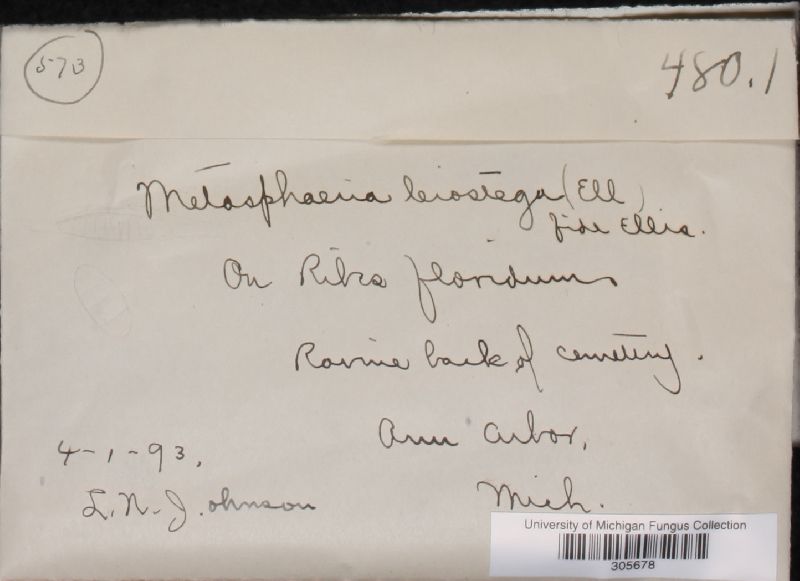 573
480.1
Metasphaeria leiostega (Ell)
fide Ellis.
On Ribes floridum
Ravine back of cemetery.
Ann Arbor,
4-1-93,
L. N. Johnson
Mich.
University of Michigan Fungus Collection
305678